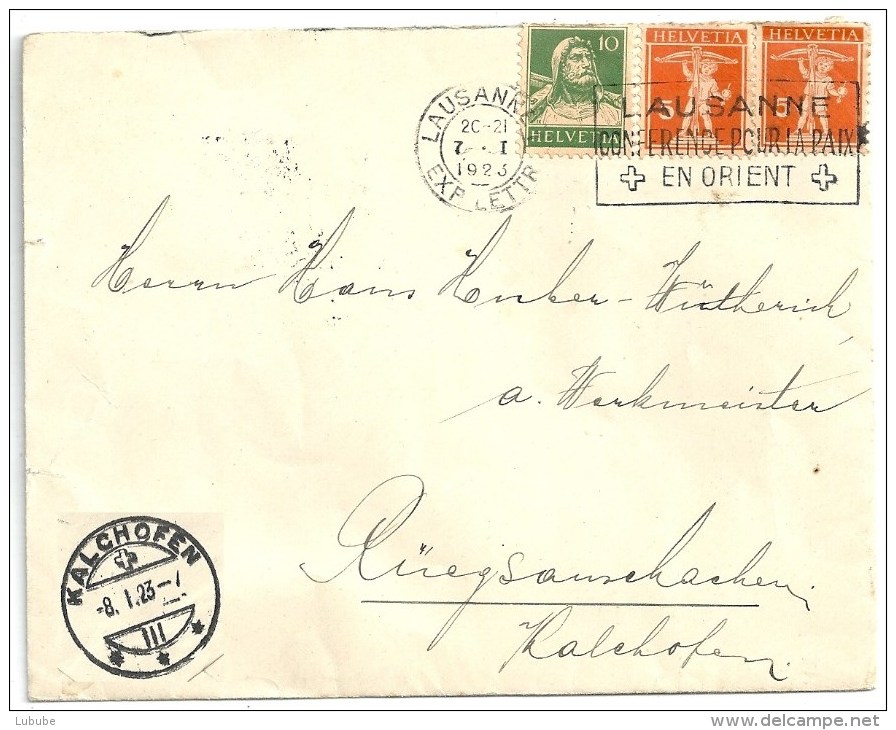 10
HELVETIA
HELVETIA
5
HELVETIA
5
LAUSANNE
20-21
7. I
1923
EXP. LETTR
LAUSANNE
CONFERENCE POUR LA PAIX
EN ORIENT
Herrn Hans Huber-Wütherich
a. Werkmeister
Rüegsauschachen.
Kalchofen.
KALCHOFEN
-8. I. 23-7
Lubube
delcampe.net